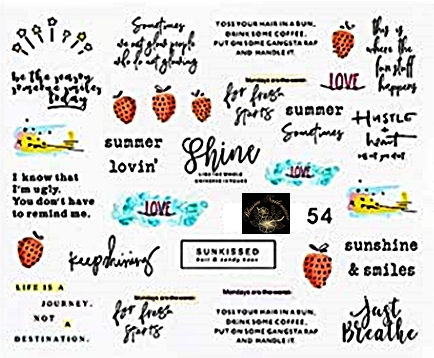 Sometimes
we not glow people
who do not glowing
TOSS YOUR HAIR IN A BUN,
DRINK SOME COFFEE,
PUT ON SOME GANGSTA RAP
AND HANDLE IT.
this is
where the
fun stuff
happens
be the reason
someone smiles
today
Mondays are the worst.
for fresh
starts
LOVE
summer
Sometimes
HUSTLE
+
heart
summer
lovin'
Shine
LIKE THE WHOLE
UNIVERSE IS YOURS
LOVE
I know that
I'm ugly.
You don't have
to remind me.
LOVE
54
keep shining
SUNKISSED
hair & sandy toes
sunshine
& smiles
LIFE IS A
JOURNEY,
NOT A
DESTINATION.
Mondays are the worst.
for fresh
starts
Mondays are the worst.
TOSS YOUR HAIR IN A BUN,
DRINK SOME COFFEE,
PUT ON SOME GANGSTA RAP
AND HANDLE IT.
Just
Breathe